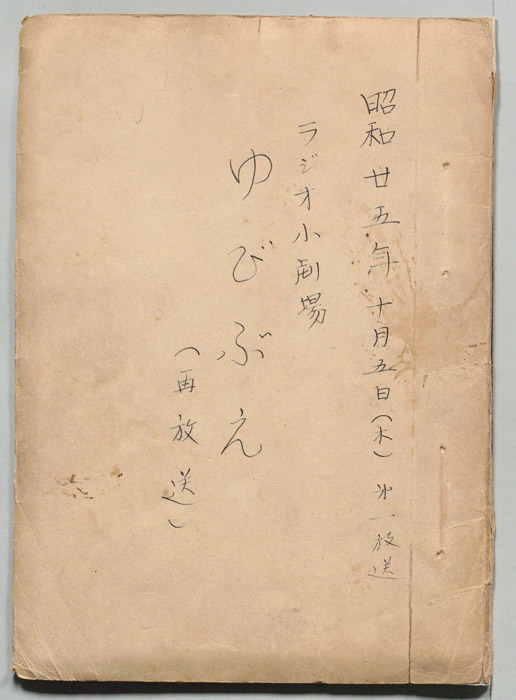 昭和廿五年十月五日(木)㐧一放送
ラジオ小劇場
ゆびぶえ
(再放送)